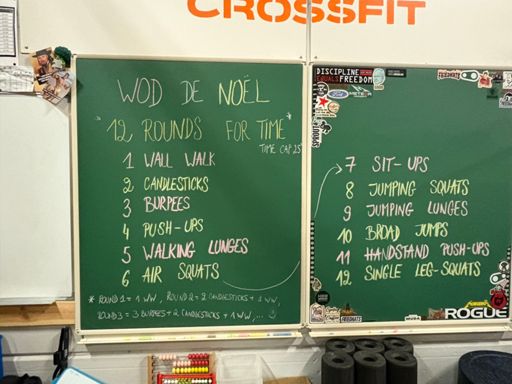 CROSSFIT
WOD DE NOËL
"12 ROUNDS FOR TIME"*
TIME CAP 25'
1 WALL WALK
2 CANDLESTICKS
3 BURPEES
4 PUSH-UPS
5 WALKING LUNGES
6 AIR SQUATS
* ROUND 1 = 1 WW, ROUND 2 = 2 CANDLESTICKS + 1 WW,
ROUND 3 = 3 BURPEES + 2 CANDLESTICKS + 1 WW, ... :)
DISCIPLINE
EQUALS FREEDOM
7 SIT-UPS
8 JUMPING SQUATS
9 JUMPING LUNGES
10 BROAD JUMPS
11 HANDSTAND PUSH-UPS
12 SINGLE LEG-SQUATS
ROGUE